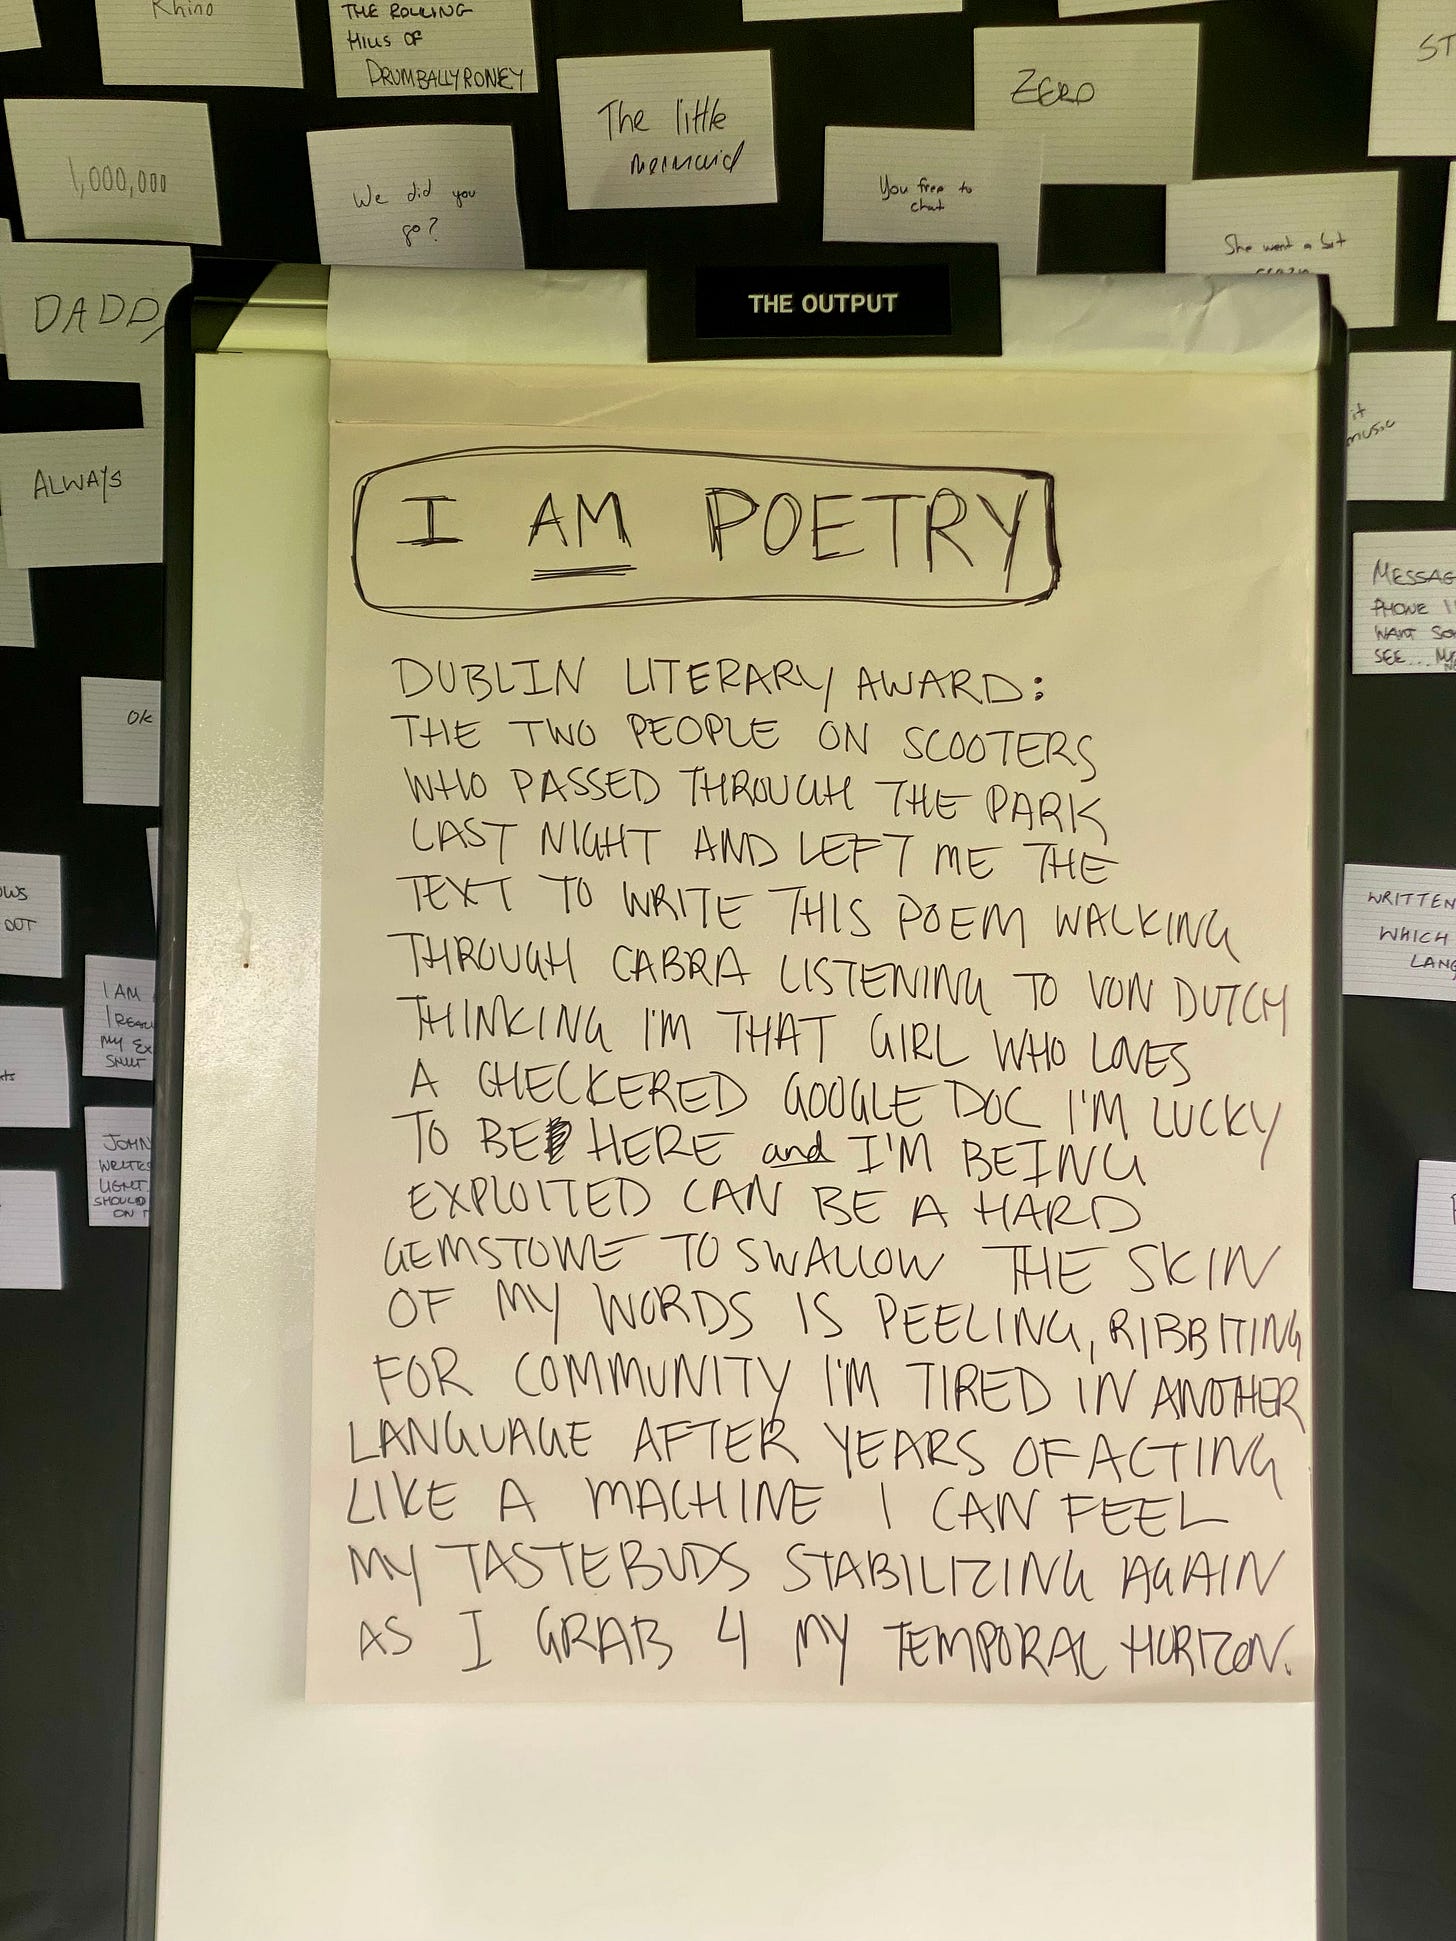 Rhino
THE ROLLING
HILLS OF
DRUMBALLYRONEY
The little
mermaid
ZERO
ST
1,000,000
We did you
go?
You free to
chat
She went a bit
DADDY
THE OUTPUT
ALWAYS
it
music
I AM POETRY
MESSAG
PHONE
WANT SO
SEE...
DUBLIN LITERARY AWARD:
THE TWO PEOPLE ON SCOOTERS
WHO PASSED THROUGH THE PARK
LAST NIGHT AND LEFT ME THE
TEXT TO WRITE THIS POEM WALKING
THROUGH CABRA LISTENING TO VON DUTCH
THINKING I'M THAT GIRL WHO LOVES
A CHECKERED GOOGLE DOC I'M LUCKY
TO BE HERE and I'M BEING
EXPLOITED CAN BE A HARD
GEMSTONE TO SWALLOW THE SKIN
OF MY WORDS IS PEELING, RIBBITING
FOR COMMUNITY I'M TIRED IN ANOTHER
LANGUAGE AFTER YEARS OF ACTING
LIKE A MACHINE I CAN FEEL
MY TASTEBUDS STABILIZING AGAIN
AS I GRAB 4 MY TEMPORAL HORIZON.
OK
OWS
OUT
I AM
I REAL
MY EX
SHUT
JOHN
WRITES
LIGHT
SHOULD
ON
WRITTEN
WHICH
LANG